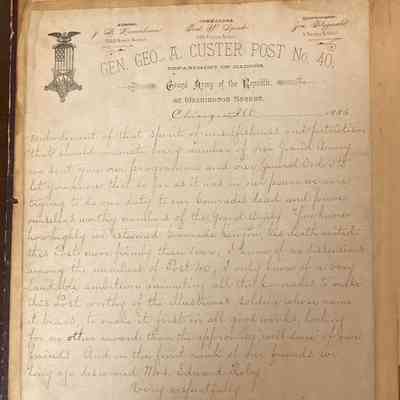 COMMANDER,
GEN. GEO. A. CUSTER POST No. 40,
DEPARTMENT OF ILLINOIS,
Grand Army of the Republic,
85 WASHINGTON STREET.
Chicago, Ill. 1886
embodiment of that spirit of unselfishness and patriotism
that should animate every member of our Grand Army
we sent you our programme and our General Order No
let you know that so far as it was in our power we were
trying to do our duty to our Comrades dead and prove
ourselves worthy members of the Grand Army. You know
how highly we esteemed Comrade his death
this Post more firmly than ever, I know of no dissensions
among the members of Post 40, I only know of a very
laudable ambition animating all the Comrades to make
this Post worthy of the illustrious soldier whose name
it bears, to make it first in all good works, looking
for no other reward than the approving "well done" of our
friends. And in the front rank of our friends we
long ago discovered Mrs. Edward Roby
Very respectfully